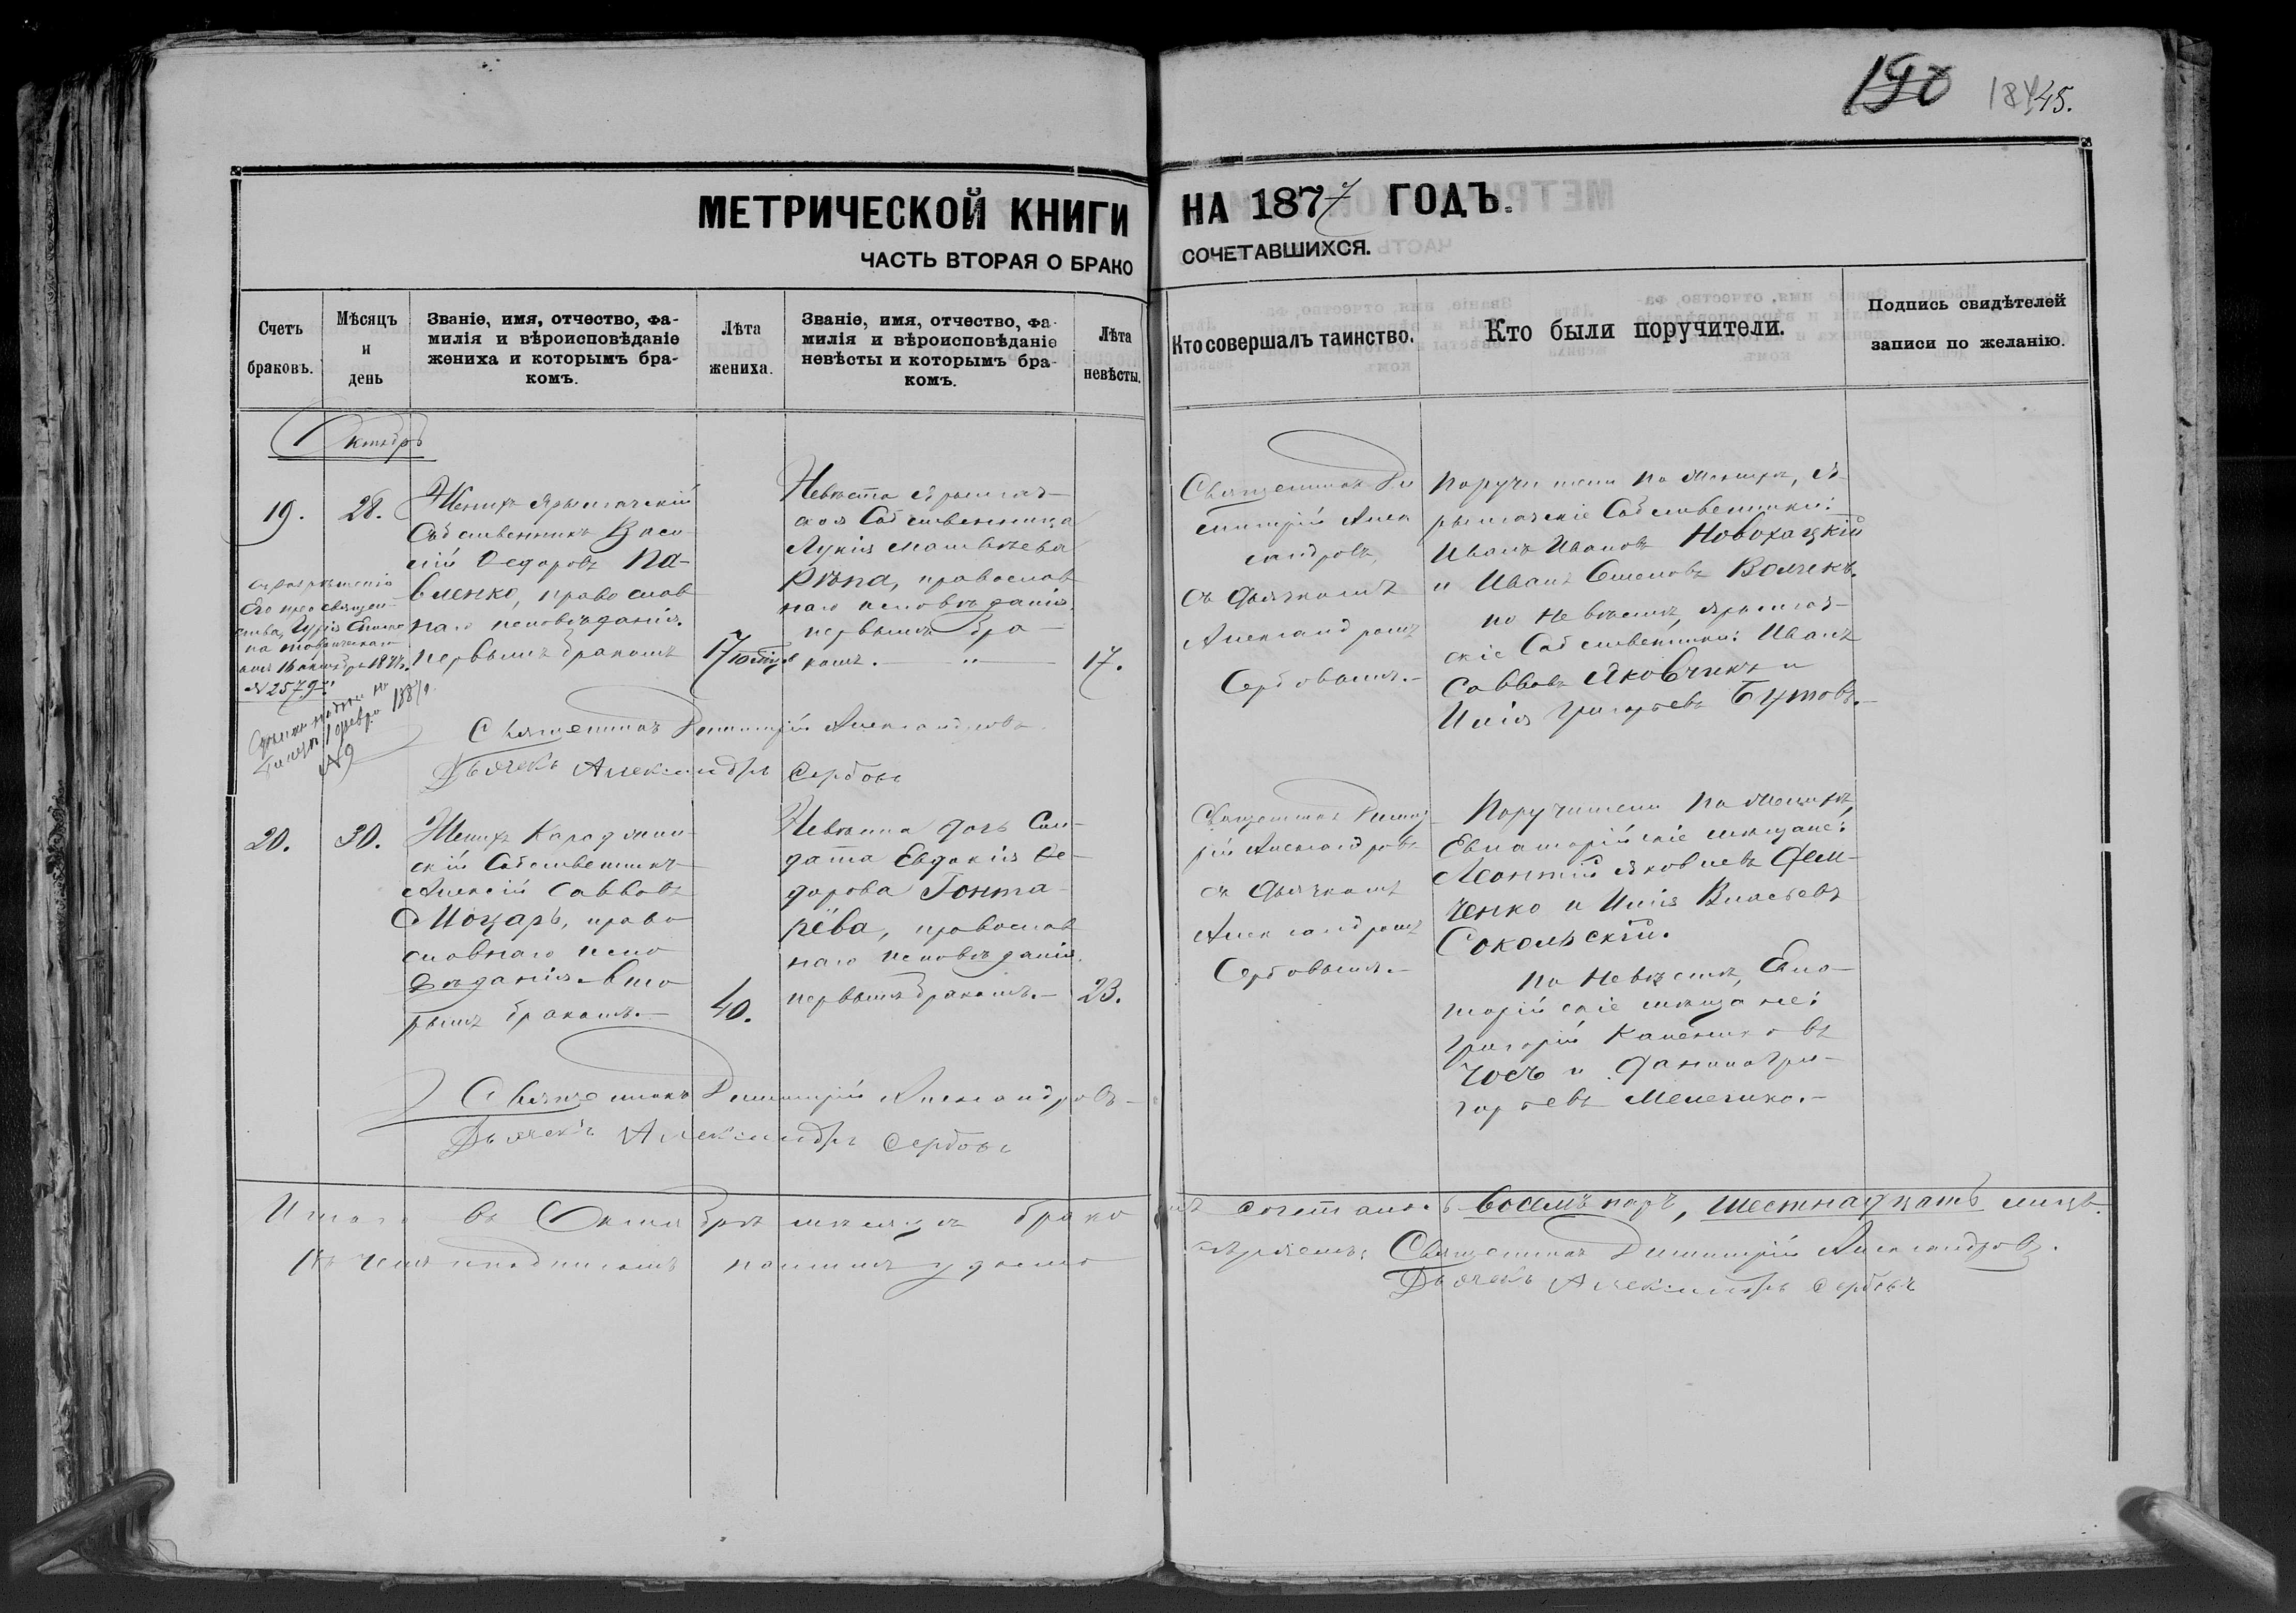 190 184 45.
МЕТРИЧЕСКОЙ КНИГИ НА 1877 ГОДЪ.
ЧАСТЬ ВТОРАЯ О БРАКО СОЧЕТАВШИХСЯ.
Счетъ браковъ.
Мѣсяцъ и день
Званіе, имя, отчество, фа-
милія и вѣроисповѣданіе
жениха и которымъ бра-
комъ.
Лѣта жениха.
Званіе, имя, отчество, фа-
милія и вѣроисповѣданіе
невѣсты и которымъ бра-
комъ.
Лѣта невѣсты.
Кто совершалъ таинство.
Кто были поручители.
Подпись свидѣтелей
записи по желанію.
Октябрь
19.
съ разрѣшенія
Его преосвящен-
ства, Гурія Еписко
па Таврическаго
отъ 16 октября 1877г.
№ 2579.
№ 9
28.
Женихъ Ярылгачскій
Собственникъ Васи
лій Ѳедоровъ Па-
вленко, православ
наго исповѣданія.
первымъ бракомъ
17
Невѣста Ярылгач-
ская Собственница
Лукія Матвѣева
Рѣпа, православ
наго исповѣданія.
первымъ бра-
комъ. — " —
17.
Священникъ Ди
митрій Алек
сандровъ,
съ дьячкомъ
Александромъ
Сербовымъ.—
Поручители по женихѣ, Я-
рылгачскіе Собственники:
Иванъ Ивановъ Новохацкій
и Иванъ Семеновъ Волчекъ.
по Невѣстѣ, Ярылгач-
скіе Собственники: Иванъ
Саввовъ Яковчикъ и
Илія Григорьевъ Бутовъ.—
Священникъ Димитрій Александровъ
Дьячекъ Александръ Сербовъ
20.
30.
Женихъ
скій Собственникъ
Алексій Саввовъ
Моцарь, право
славнаго испо
вѣданія. вто
рымъ бракомъ.—
40.
Невѣста дочь Сол-
дата Евдокія Ѳе-
дорова Гонта-
рёва, православ
наго исповѣданія.
первымъ бракомъ.—
23.
Священникъ Димит
рій Александровъ
съ дьячкомъ
Александромъ
Сербовымъ.—
Поручители по женихѣ,
Евпаторійскіе мѣщане:
Леонтій Яковлевъ Дем-
ченко и Илія Власьевъ
Сокольскій.
По Невѣстѣ, Евпа-
торійскіе мѣщане:
Григорій
и Данило Гри-
горьевъ
Священникъ Димитрій Александровъ—
Дьячекъ Александръ Сербовъ
Итого въ Октябрѣ мѣсяцѣ брако мъ сочеталось восемь паръ, шестнадцать лицъ.
Въ чемъ и подписомъ нашимъ удосто вѣряемъ: Священникъ Димитрій Александровъ.
Дьячекъ Александръ Сербовъ